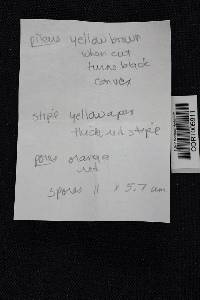 pileus yellow brown
when cut
turns black
convex
stipe yellow apex
thick, red stipe
pores orange
red
spores 11 x 5.7 um